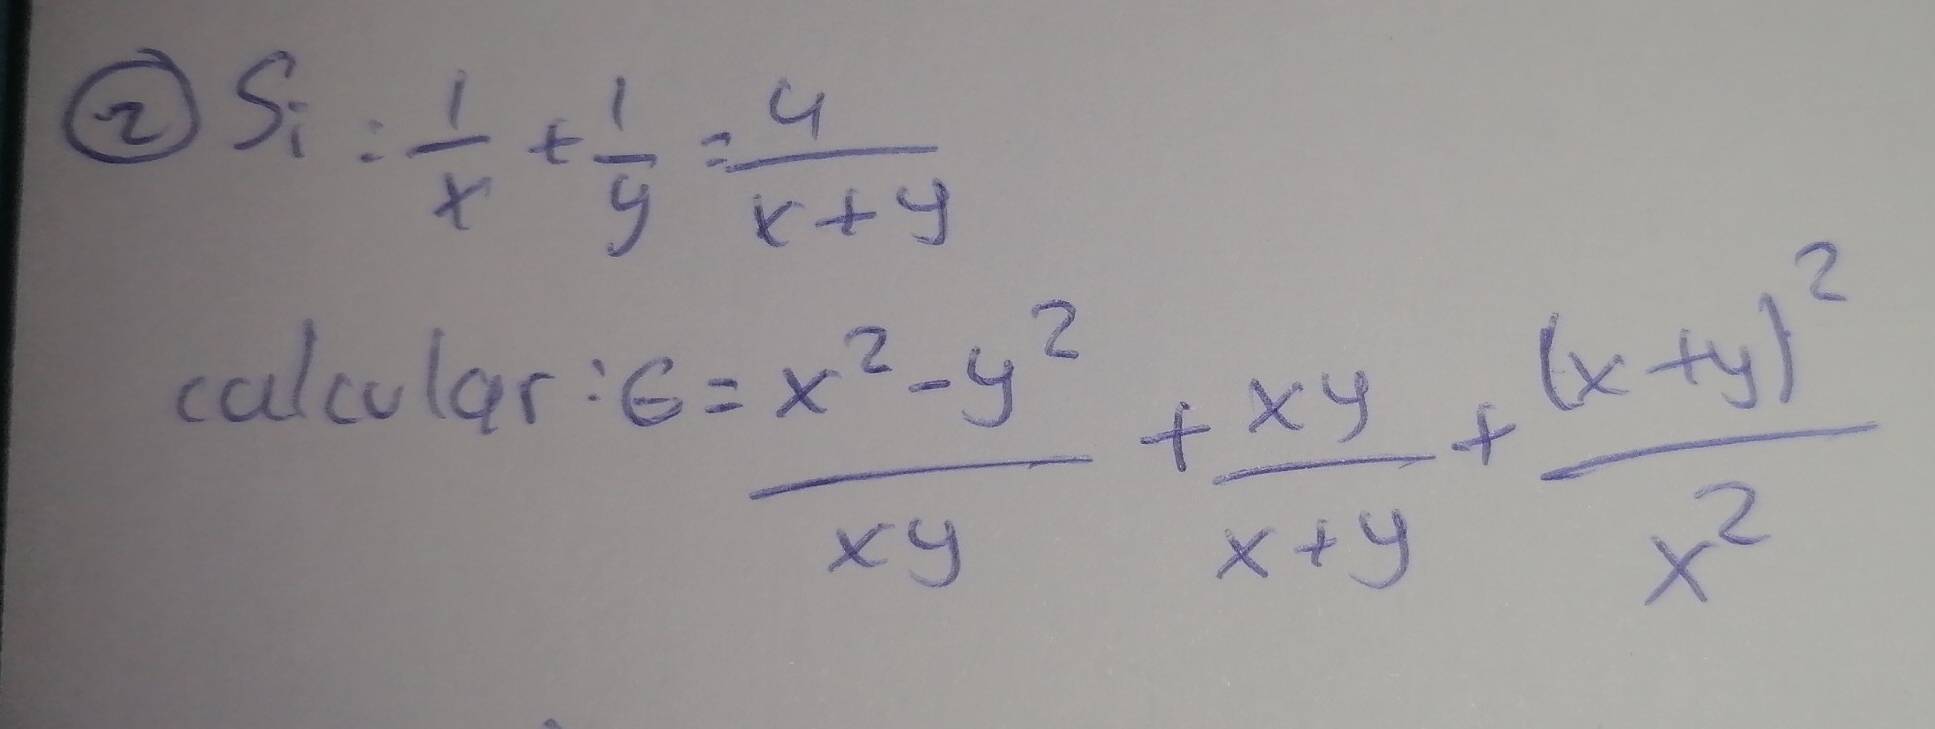 ② Si: 1/x + 1/y = 4/(x+y)
calcular: E = (x² - y²)/(xy) + (xy)/(x+y) + (x+y)²/x²